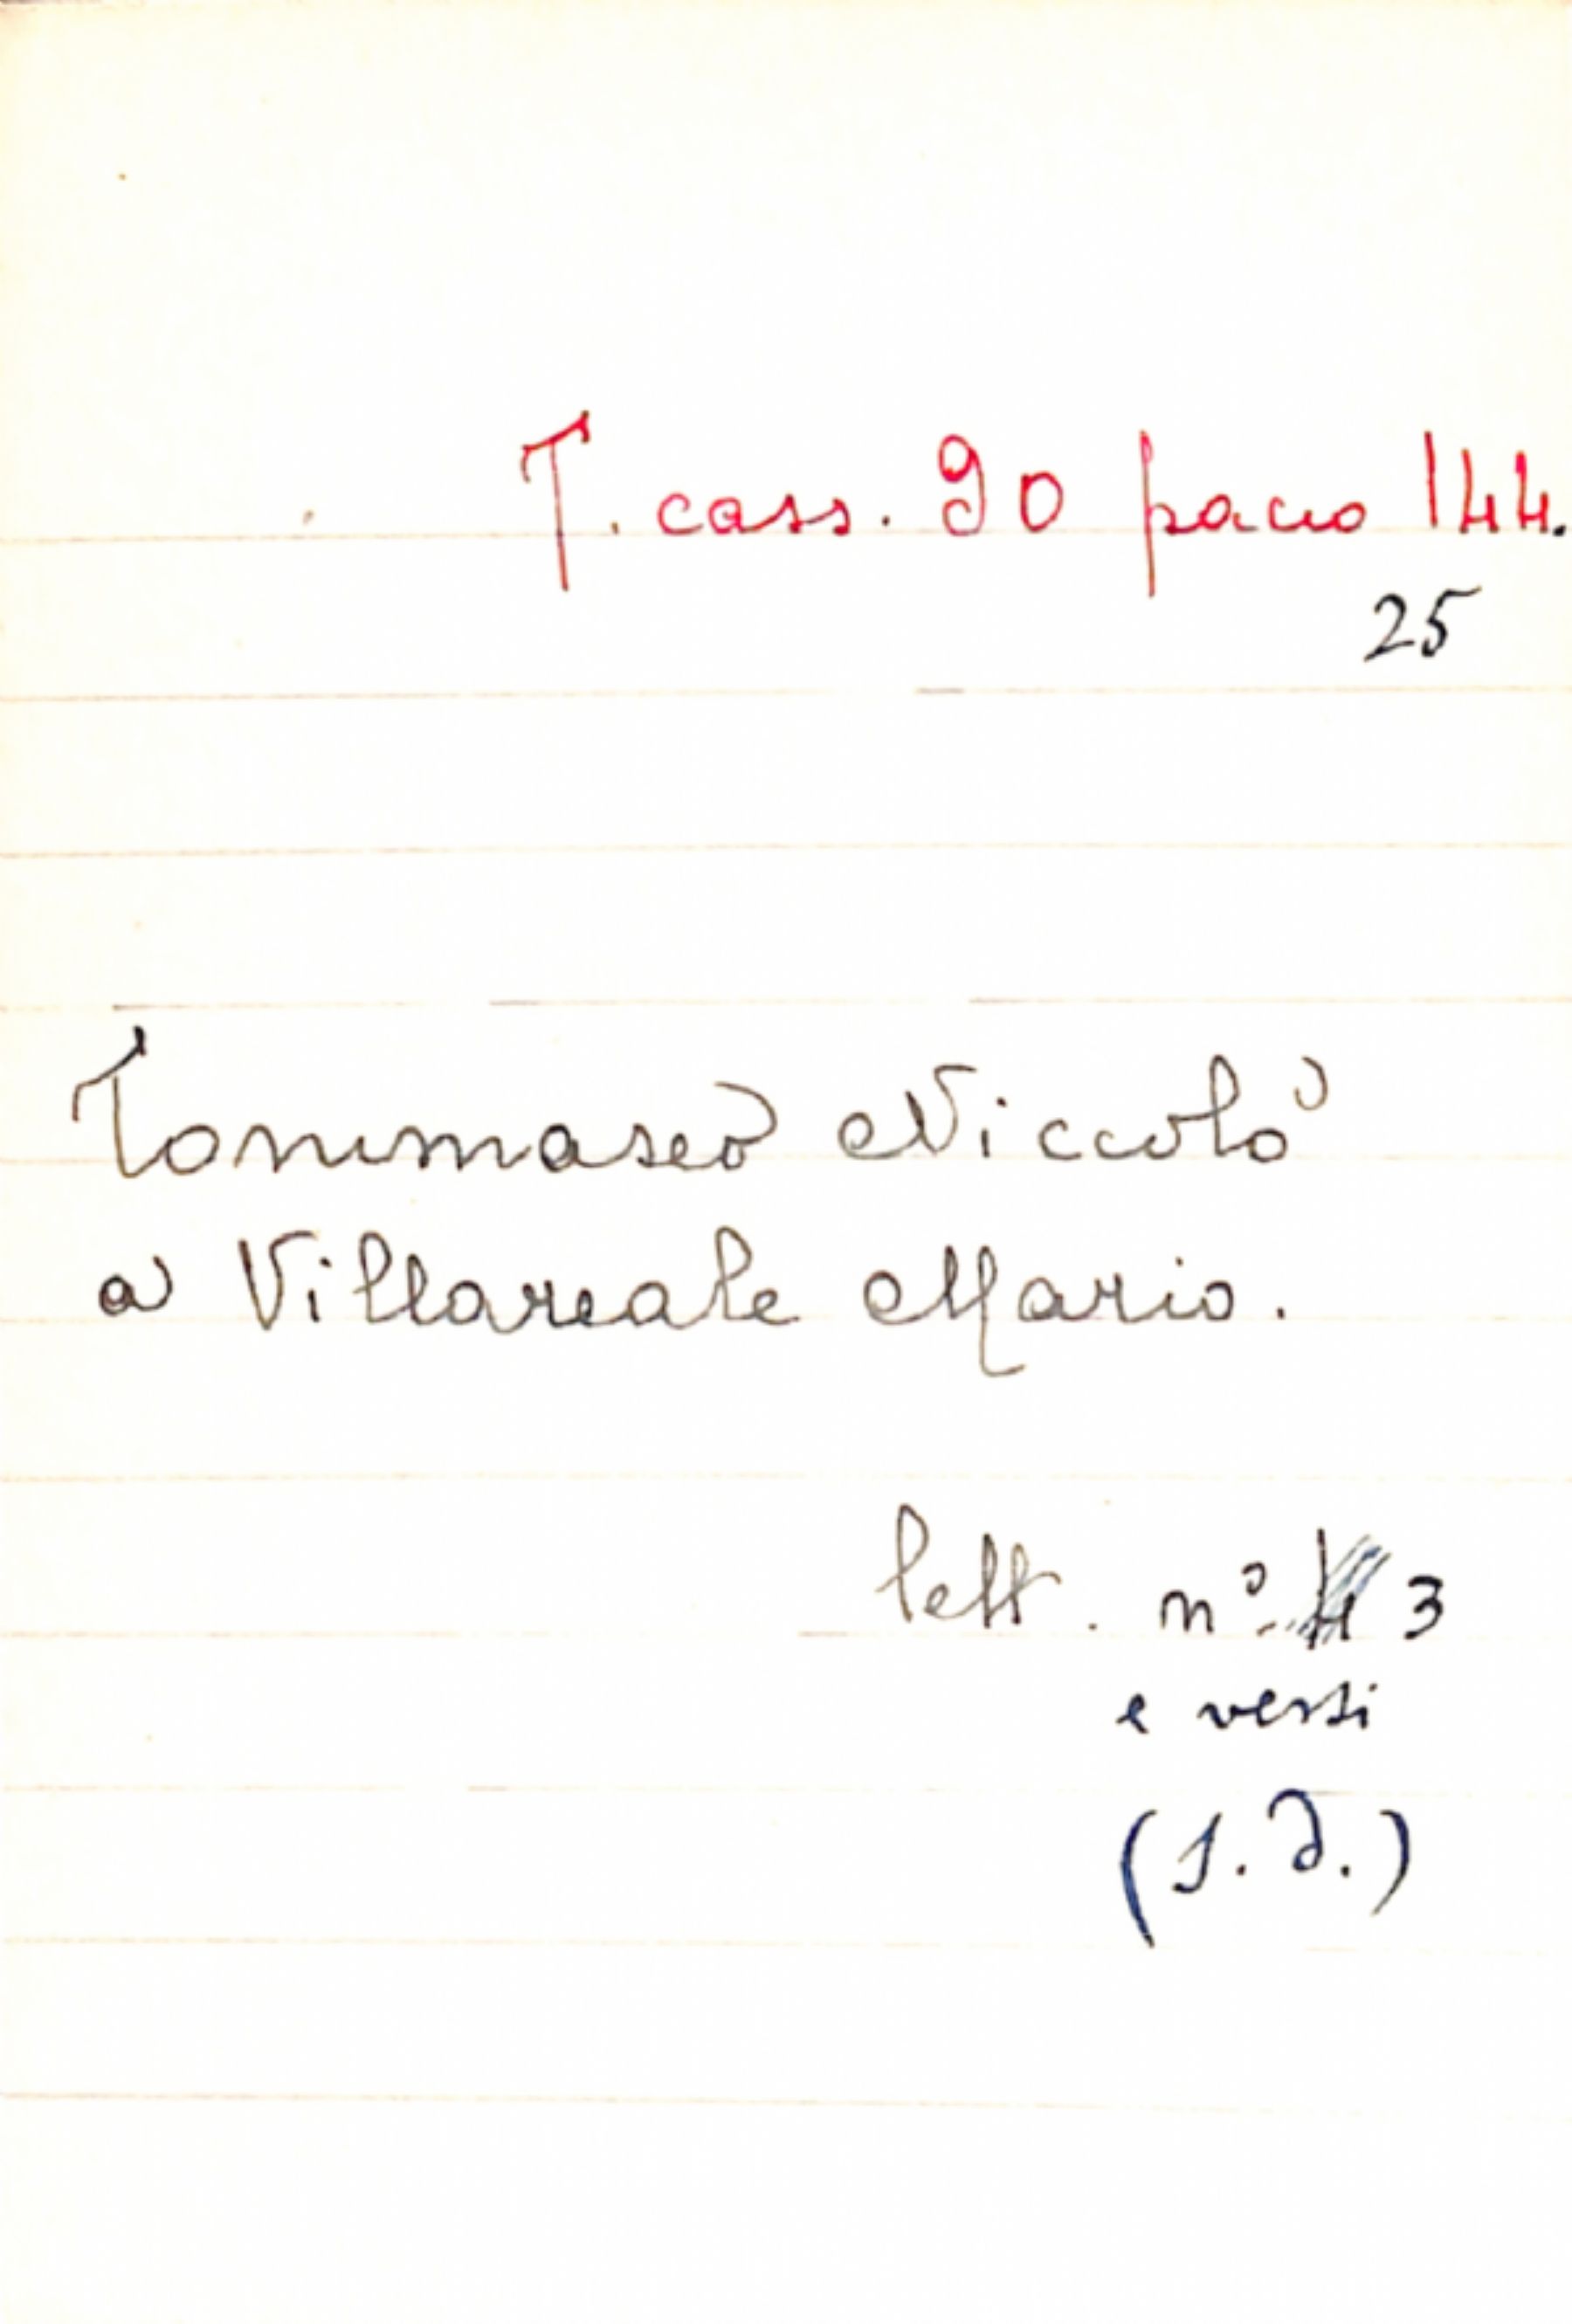 T. cass. 90 pacco 144.
25
Tommaseo Niccolò
a Villareale Mario.
lett. n° 3
e versi
(s.d.)